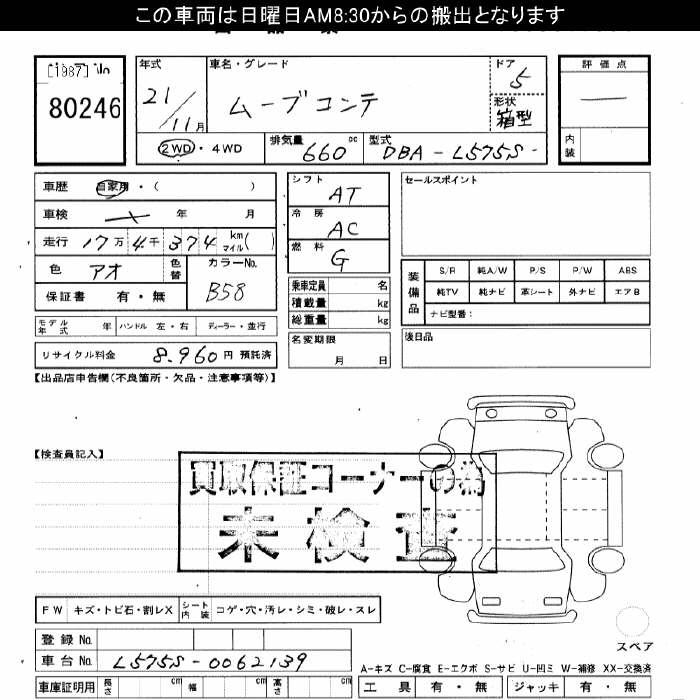 この車両は日曜日AM8:30からの搬出となります
[1987] No
80246
年式
21/11月
車名・グレード
ムーブコンテ
ドア
5
形状
箱型
2WD・4WD
排気量
660 cc
型式
DBA-L575S-
評価点
—
内装
車歴 自家用・( )
車検 年 月
走行 17万 4千 374 km マイル( )
色 アオ 色替
カラーNo.
B58
保証書 有・無
モデル年式 年 ハンドル 左・右 ディーラー・並行
リサイクル料金 8,960円 預託済
シフト
AT
冷房
AC
燃料
G
乗車定員 名
積載量 kg
総重量 kg
名変期限
月 日
セールスポイント
装備品
S/R 純A/W P/S P/W ABS
純TV 純ナビ 革シート 外ナビ エアB
ナビ型番:
後日品
【出品店申告欄(不良箇所・欠品・注意事項等)】
【検査員記入】
買取保証コーナーの為
未検査
FW キズ・トビ石・割レX シート内装 コゲ・穴・汚レ・シミ・破レ・スレ
スペア
登録No.
車台No. L575S-0062139
A-キズ C-腐食 E-エクボ S-サビ U-凹ミ W-補修 XX-交換済
車庫証明用 長さ cm 幅 cm 高さ cm
工具 有・無 ジャッキ 有・無